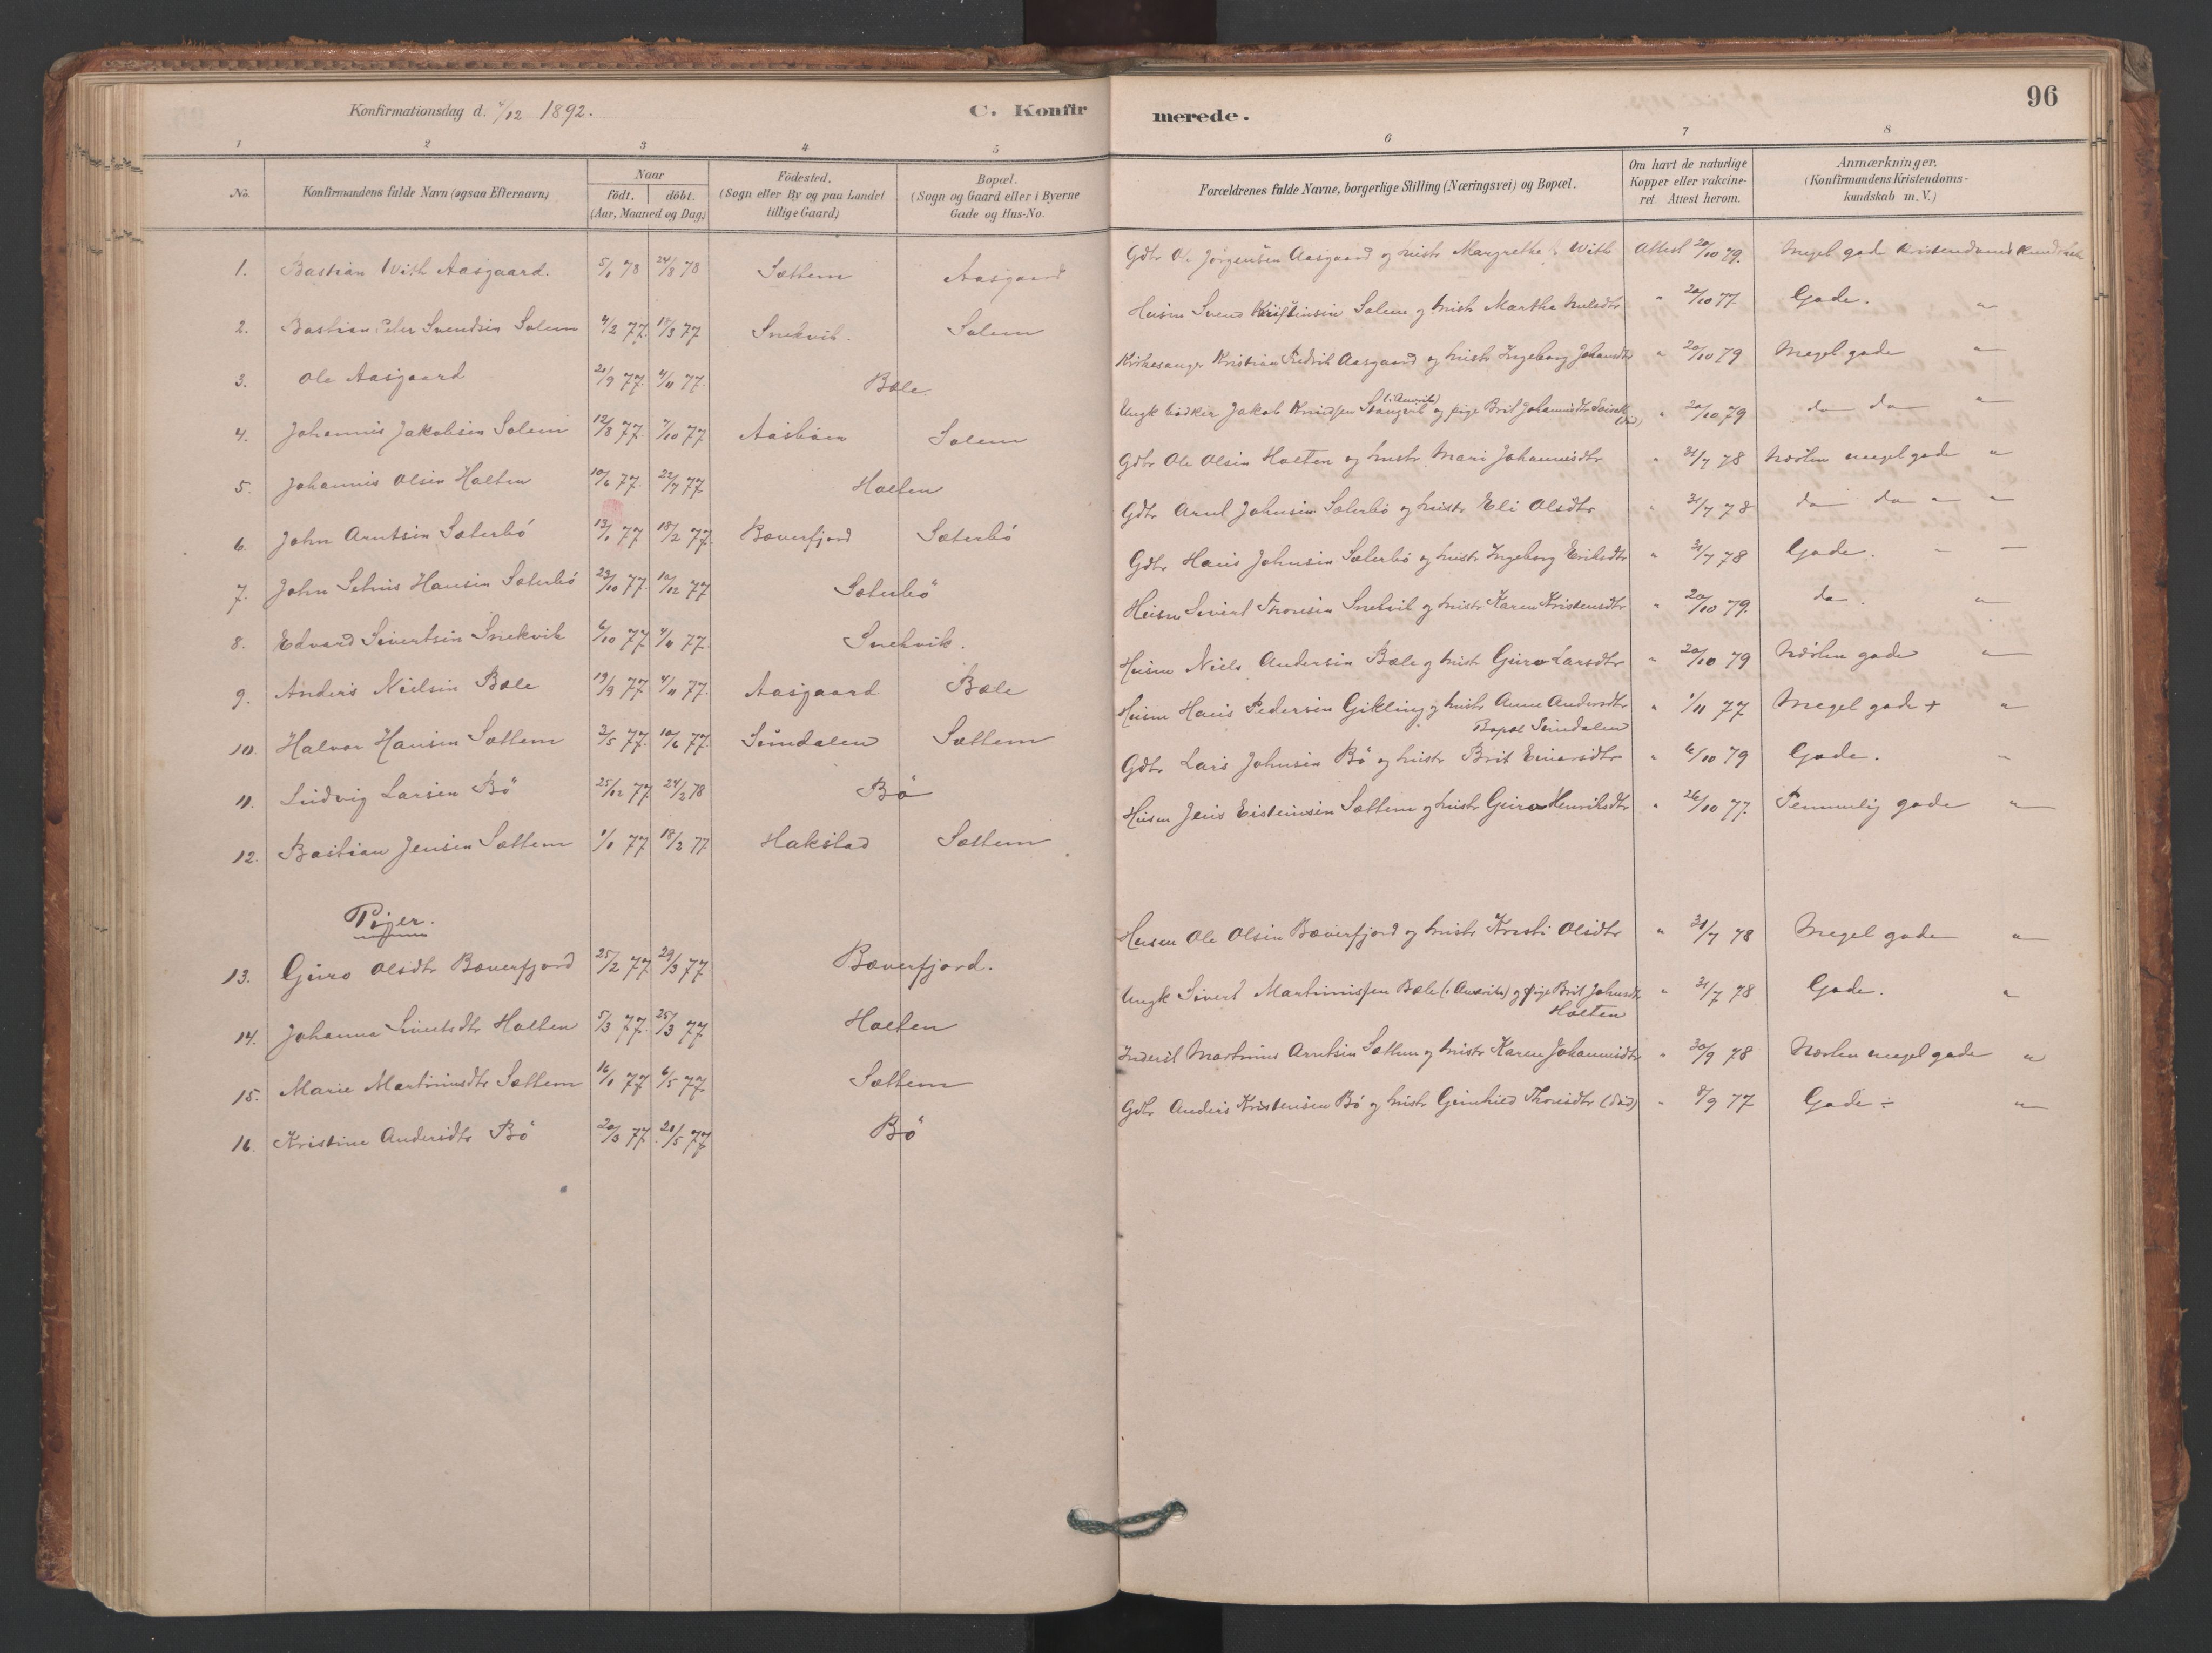 Konfirmationsdag d. 4/12 1892.
C. Konfirmerede.
96
1 2 3 4 5 6 7 8
No.
Konfirmandens fulde Navn (ogsaa Efternavn)
Naar
födt. döbt.
(Aar, Maaned og Dag.)
Födested.
(Sogn eller By og paa Landet
tillige Gaard.)
Bopæl.
(Sogn og Gaard eller i Byerne
Gade og Hus-No.
Forældrenes fulde Navne, borgerlige Stilling (Næringsvei) og Bopæl.
Om havt de naturlige
Kopper eller vakcine-
ret. Attest herom.
Anmærkninger.
(Konfirmandens Kristendoms-
kundskab m.V.)
1. Bastian With Aasgaard. 5/1 78 24/3 78 Sættem Aasgaard Gdbr Ol. Jörgensen Aasgaard og hustr Margrethe With Attest 20/10 79. Meget gode Kristendomskundskab
2. Bastian Peter Svendsen Solem 4/2 77. 18/3 77 Snekvik. Solem Husm Svend Kristensen Solem og hustr Martha Nilsdtr " 20/10 77 Gode. "
3. Ole Aasgaard 21/9 77. 4/11 77. Bæle. Kirkesanger Kristian Fredrik Aasgaard og hustr Ingeborg Johansdtr " 20/10 79 Meget gode "
4. Johannis Jakobsen Solem 12/8 77. 7/10 77 Aasböen Solem Ungk Jakob Knudsen Stangvik (i Amerika) og pige Brit Johannisdtr (död) " 20/10 79 do do "
5. Johannis Olsen Holten 10/6 77. 22/7 77 Holten Gdbr Ole Olsen Holten og hustr Mari Johannisdtr " 31/7 78 Næsten meget gode "
6. John Arntsen Sæterbö 13/1 77 18/2 77. Bæverfjord Sæterbö Gdbr Arnt Johnsen Sæterbö og hustr Eli Olsdtr " 31/7 78 do do " "
7. John Hansen Sæterbö 23/10 77. 10/12 77 Sæterbö Gdbr Hans Johnsen Sæterbö og hustr Ingeborg Eriksdtr " 31/7 78 Gode. " —
8. Edvard Sivertsen Snekvik 6/10 77. 4/11 77. Snekvik. Husm Sivert Thoresen Snekvik og hustr Karen Kristensdtr " 20/10 79. do. "
9. Anders Nielsen Bæle 19/9 77. 4/11 77. Aasgaard Bæle Husm Niels Andersen Bæle og hustr Guro Larsdtr " 20/10 79 Næsten gode "
10. Halvor Hansen Sættem 3/5 77. 10/6 77. Sundalen Sættem Husm Hans Pedersen Gikling og hustr Anne Andersdtr " 1/11 77 Meget gode + "
Bopæl Sundalen
11. Ludvig Larsen Bö 25/12 77. 24/2 78 Bö Gdbr Lars Johnsen Bö og hustr Brit Einarsdtr " 6/10 79 Gode. "
12. Bastian Jensen Sættem 1/1 77 18/2 77 Hakstad Sættem Husm Jens Eisteinsen Sættem og hustr Guro Henriksdtr " 26/10 77. Temmelig gode "
Piger.
13. Guro Olsdtr Bæverfjord 25/2 77. 29/3 77 Bæverfjord. Husm Ole Olsen Bæverfjord og hustr Kristi Olsdtr " 31/7 78 Meget gode "
14. Johanna Sivertsdtr Holten 5/3 77. 25/3 77 Holten Ungk Sivert Martinussen Bæle (i Amerika) og pige Brit Johnsdtr " 31/7 78 Gode. "
Holten
15. Marie Martinusdtr Sættem 16/1 77 6/5 77. Sættem Inderst Martinus Arntsen Sættem og hustr Karen Johannisdtr " 30/9 78 Næsten meget gode "
16. Kristine Andersdtr Bö 20/3 77 21/5 77 Bö Gdbr Anders Kristensen Bö og hustr Gunhild Thoresdtr (död) " 8/9 77 Gode ÷ "